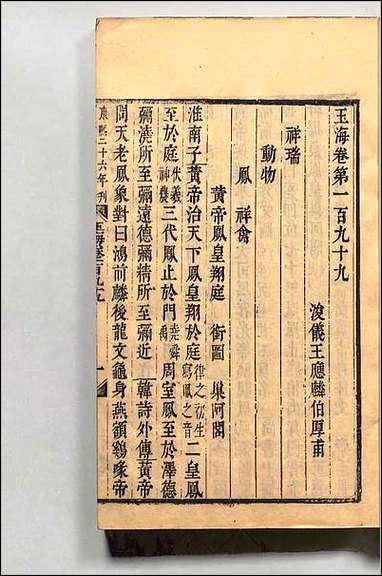 玉海卷第一百九十九
浚儀王應麟伯厚甫
祥瑞
動物
鳳 祥禽
黃帝鳳皇翔庭 銜圖 巢阿閣
淮南子黃帝治天下鳳皇翔於庭律之初生寫鳳之音二皇鳳
至於庭伏羲神農三代鳳止於門堯舜禹周室鳳至於澤德
彌澆所至彌遠德彌精所至彌近 韓詩外傳黃帝
問天老鳳象對曰鴻前麟後龍文龜身燕頷鷄喙帝
康熙二十六年刊 玉海卷一百九十九 一